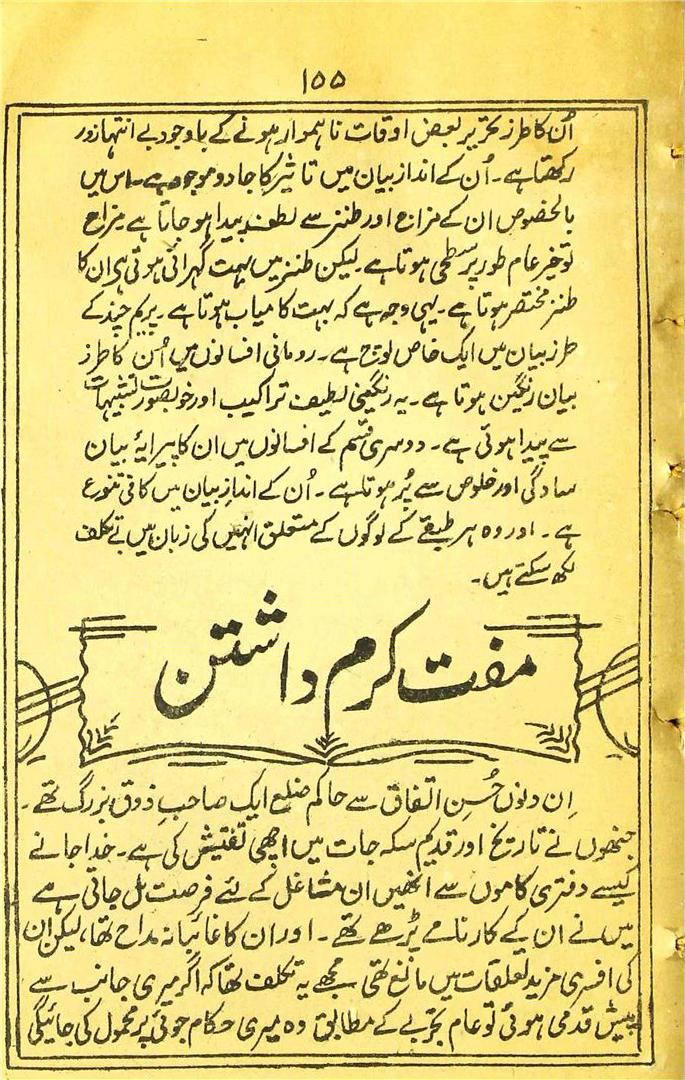 ۱۵۵
اُن کا طرز تحریر بعض اوقات نا ہموار ہونے کے باوجود بے انتہا زور
رکھتا ہے۔ اُن کے انداز بیان میں تاثیر کا جادو موجود ہے۔ اس میں
بالخصوص ان کے مزاح اور طنز سے لطف پیدا ہو جاتا ہے مزاح
تو خیر عام طور پر سطحی ہوتا ہے۔ لیکن طنز میں بہت گہرائی ہوتی ہی ان کا
طنز مختصر ہوتا ہے۔ یہی وجہ ہے کہ بہت کامیاب ہوتا ہے۔ پریم چند کے
طرز بیان میں ایک خاص لوچ ہے۔ رومانی افسانوں میں اُسن کا طرز
بیان رنگین ہوتا ہے۔ یہ رنگینی لطیف تراکیب اور خوبصورت تشبیہات
سے پیدا ہوتی ہے۔ دوسری قسم کے افسانوں میں ان کا پیرایۂ بیان
سادگی اور خلوص سے پُر ہوتا ہے۔ اُن کے اندازِ بیان میں کافی تنورع
ہے۔ اور وہ ہر طبقے کے لوگوں کے متعلق انہیں کی زبان میں بے تکلف
لکھ سکتے ہیں۔
مفت کرم داشتن
اِن دنوں حُسنِ اتفاق سے حاکم ضلع ایک صاحبِ ذوق بزرگ تھے۔
جنھوں نے تاریخ اور قدیم سکہ جات میں اچھی تفتیش کی ہے۔ خدا جانے
کیسے دفتری کاموں سے انھیں ان مشاغل کے لئے فرصت مل جاتی ہے
میں نے ان کے کارنامے پڑھے تھے۔ اور ان کا غائبانہ مداح تھا، لیکن ان
کی افسری مزید تعلقات میں مانع تھی مجھے یہ تکلف تھا کہ اگر میری جانب سے
پیش قدمی ہوئی تو عام تجربے کے مطابق وہ میری حکام جوئی پر محمول کی جائیگی